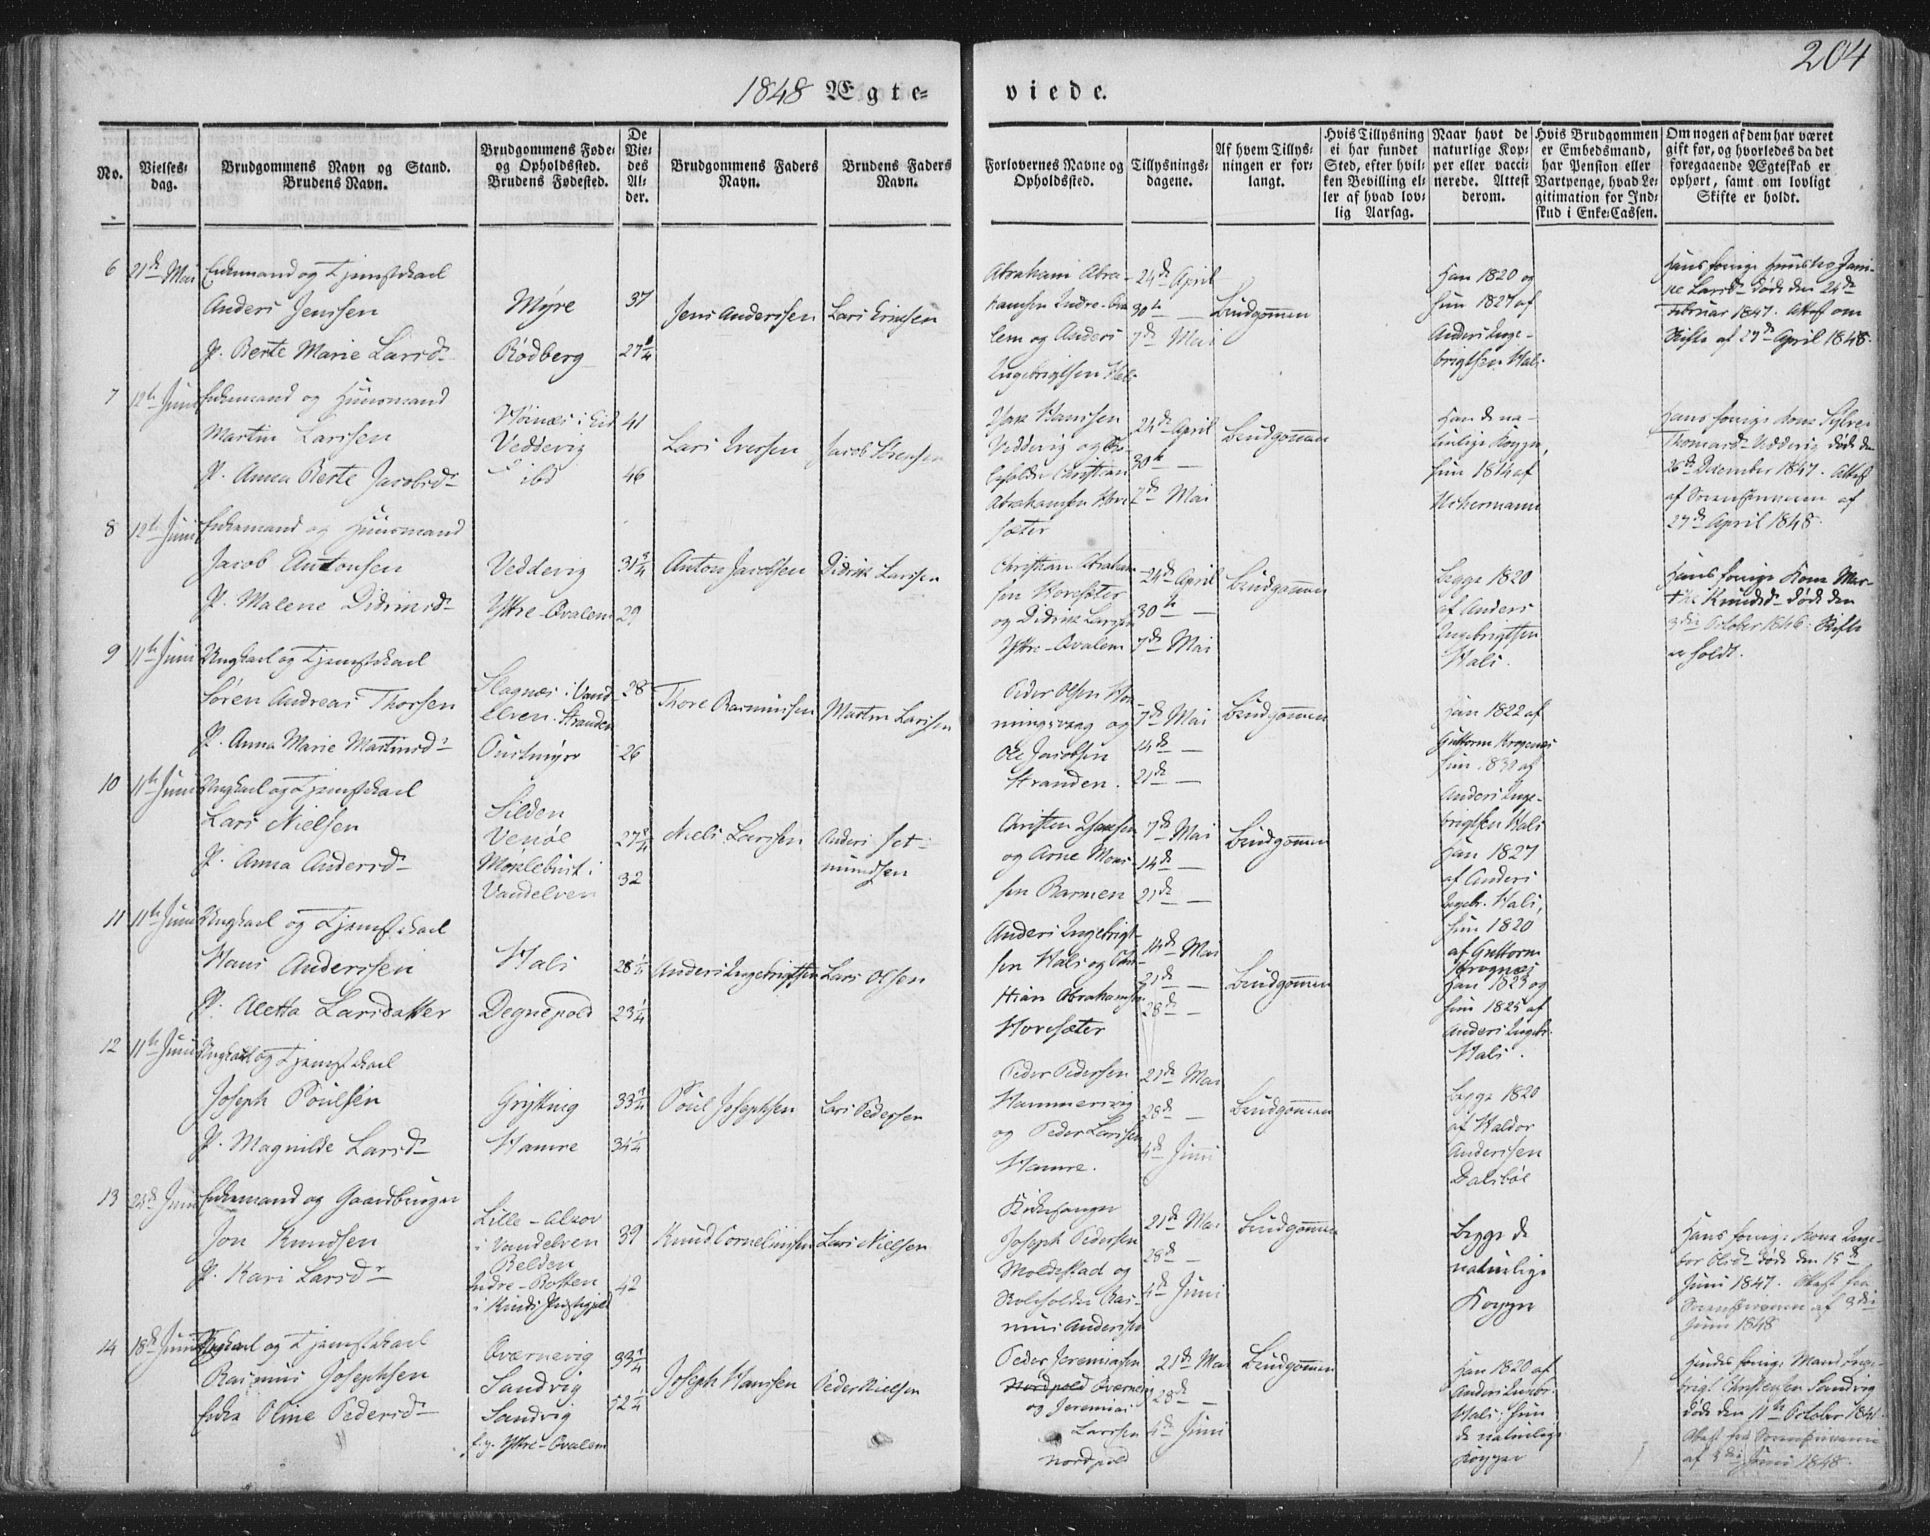 204
1848 Ægte-
viede.
No.
Vielses-
dag.
Brudgommens Navn og Stand.
Brudens Navn.
Brudgommens Føde-
og Opholdssted.
Brudens Fødested.
De
Vie-
des
Al-
der.
Brudgommens Faders
Navn.
Brudens Faders
Navn.
Forlovernes Navne og
Opholdssted.
Tillysnings-
dagene.
Af hvem Tillys-
ningen er for-
langt.
Hvis Tillysning
ei har fundet
Sted, efter hvil-
ken Bevilling el-
ler af hvad lov-
lig Aarsag.
Naar havt de
naturlige Kop-
per eller vacci-
nerede. Attest
derom.
Hvis Brudgommen
er Embedsmand,
har Pension eller
Vartpenge, hvad Le-
gitimation for Ind-
skud i Enke-Cassen.
Om nogen af dem har været
gift før, og hvorledes da det
foregaaende Ægteskab er
ophørt, samt om lovligt
Skifte er holdt.
6 21de Mai Enkemand og Tjenestekarl
Anders Jenssen
P. Berte Marie Larsd
Myre
Rødberg
37
27¼
Jens Anderssen
Lars Ericsen
Abraham Abra-
hamsen Indre-Ova
lem og Anders
Ingebrigtsen Hals
24de April
30te —
7de Mai
Brudgommen
Han 1820 og
hun 1827 af
Anders Inge-
brigtsen Hals
Hans forrige Hustro Jani-
ne Larsd døde den 24de
Februar 1847. Attest om
Skifte af 27de April 1848.
7 12te Juni Enkemand og Huusmand
Martin Larssen
P. Anna Berte Jacobsd
Hornæs i Eid
Veddevig
ibd
41
46
Lars Iverssen
Jacob Sørensen
Hanssen
Veddevig og
Christian
Abrahamsen Hore-
sæter
24de April
30te —
7de Mai
Brudgommen
Han de na-
turlige Kopper,
hun 1814 af
Uchermann
Hans forrige Kone Sylvei
Thomasd Veddevig døde den
26de December 1847. Attest
af Sorenskriveren af
27de April 1848.
8 12te Juni Enkemand og Huusmand
Jacob Antonsen
P. Malene Didriksd
Veddevig
Yttre-Ovalem
31¾
29
Anton Jacobsen
Didrik Larssen
Christian Abraham
sen Horesæter
og Didrik Larssen
Yttre-Ovalem
24de April
30te —
7de Mai
Brudgommen
Begge 1820
af Anders
Ingebrigtsen
Hals.
Hans forrige Kone Mar-
the Knudsd døde den
3die October 1846. Skifte
er holdt.
9 11te Juni Ungkarl og Tjenestekarl
Søren Andreas Thorsen
P. Anna Marie Martinsd
Slagnæs i Vand
elven. Stranden
Oustmyr
28
26
Thore Rasmussen
Martin Larssen
Peder Olsen Hor-
ningsvaag og
Ole Jacobsen
Stranden.
7de Mai
14de —
21de —
Brudgommen
Han 1822 af
Guttorm Krognæs
hun 1830 af
Anders Inge-
brigtsen Hals
10 11te Juni Ungkarl og Tjenestekarl
Lars Nielsen
P. Anna Andersd
Silden
Venøe
Moklebust i
Vandelven
27¾
32
Niels Larssen
Anders Set-
mundsen
Christen Hanssen
og Arne Mons-
sen Barmen
7de Mai
14de —
21de —
Brudgommen
Han 1827
af Anders
Ingebr. Hals,
hun 1820
af Guttorm
Krognæs
11 11te Juni Ungkarl og Tjenestekarl
Hans Anderssen
P. Aletta Larsdatter
Hals
Degnepold
28¼
23¼
Anders Ingebrigtsen
Lars Olsen
Anders Ingebrigt-
sen Hals og Chri-
stian Abrahamsen
Horesæter
14de Mai
21de —
28de —
Brudgommen
Han 1823 og
hun 1825 af
Anders Ingebr.
Hals.
12 11te Juni Ungkarl og Tjenestekarl
Joseph Poulsen
P. Magnilde Larsd
Grytting
Hamre
33¾
34¼
Poul Josephsen
Lars Pedersen
Peder Pedersen
Hammersvig
og Peder Larssen
Hamre.
21de Mai
28de —
4de Juni
Brudgommen
Begge 1820
af Haldor
Anderssen
Dalsbøe
13 24de Juni Enkemand og Gaardbruger
Jon Knudsen
P. Kari Larsd
Lille-Alsov
i Vandelven
Belden
Indre-Botten
i Kinds Præstegjeld
39
42
Knud Corneliussen
Lars Nielsen
Kirkesanger
Joseph Pedersen
Moldestad og
Ras-
mus Anderssen
21de Mai
28de —
4de Juni
Brudgommen
Begge de
naturlige
Kopper
Hans forrige Kone Inge-
bor Olsd døde den 15de
Juni 1847. Attest fra
Sorenskriveren af 3die
Juni 1848
14 18de Juni Ungkarl og Tjenestekarl
Rasmus Josephsen
Enke Oline Pedersd
Overnevig
Sandvig
Sandvig
f. p. Yttre-Ovalem
33¼
52¼
Joseph Hanssen
Peder Nielsen
Peder Jeremiasen
Nordpold Overnevig
og Jeremias
Larssen
Nordpold
21de Mai
28de —
4de Juni
Brudgommen
Han 1820 af
Anders Ingebr.
Hals; hun
de naturlige
Kopper
Hendes forrige Mand Inge-
brigt Christensen Sandvig
døde den 11te October 184
Attest fra Sorenskriveren
af 3die Juni 1848.